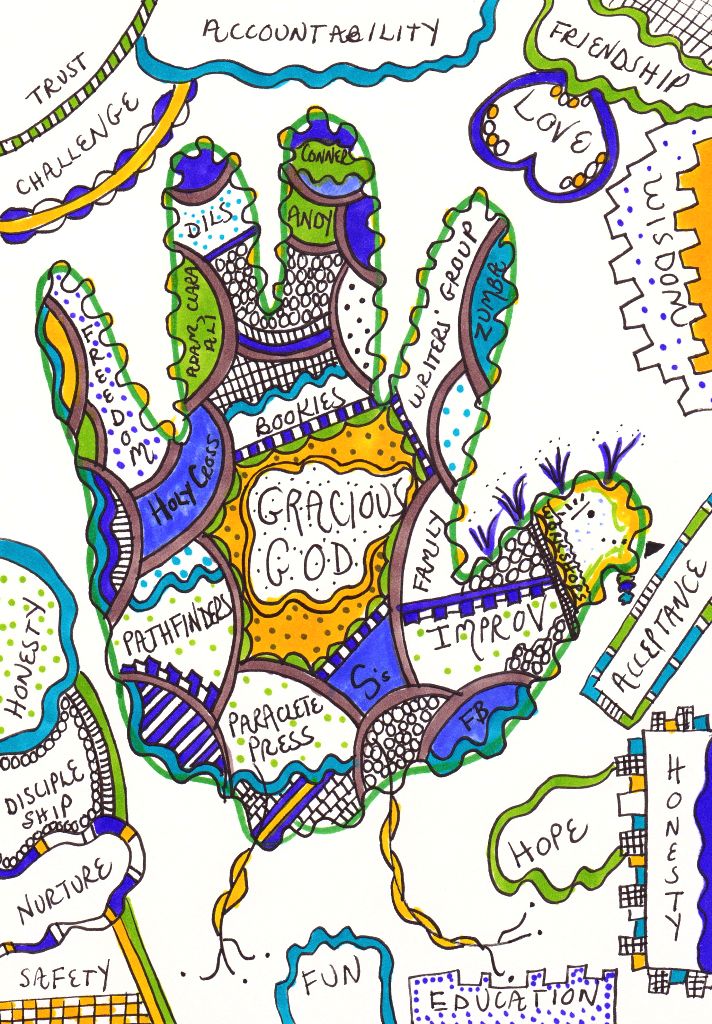 ACCOUNTABILITY
TRUST
CHALLENGE
FRIENDSHIP
LOVE
WISDOM
CONNER
ANDY
DILS
ADAM, CLARA
ALI
FREEDOM
WRITERS' GROUP
ZUMBA
BOOKIES
HOLY CROSS
GRACIOUS
GOD
FAMILY
WORKSHOPS
PATHFINDERS
IMPROV
S's
FB
PARACLETE
PRESS
ACCEPTANCE
HONESTY
DISCIPLE
SHIP
NURTURE
SAFETY
HOPE
HONESTY
FUN
EDUCATION